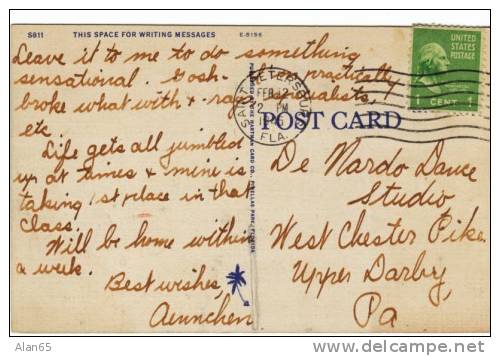 S811 THIS SPACE FOR WRITING MESSAGES E-5156
Leave it to me to do something
sensational. Gosh - I'm practically
broke what with x-rays, specialists,
etc.
Life gets all jumbled
up at times & mine is
taking 1st place in that
class.
Will be home within
a week.
Best wishes,
Aennchen
SAINT PETERSBURG
FEB 12
2 PM
FLA.
UNITED STATES
POSTAGE
1 CENT 1
POST CARD
De Nardo Dance
Studio
West Chester Pike
Upper Darby,
Pa
Alan65
delcampe.net